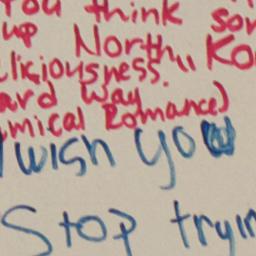 You think som
up North, Ko
liciousness.
ard Way
mical Romance)
I wish you
Stop tryin